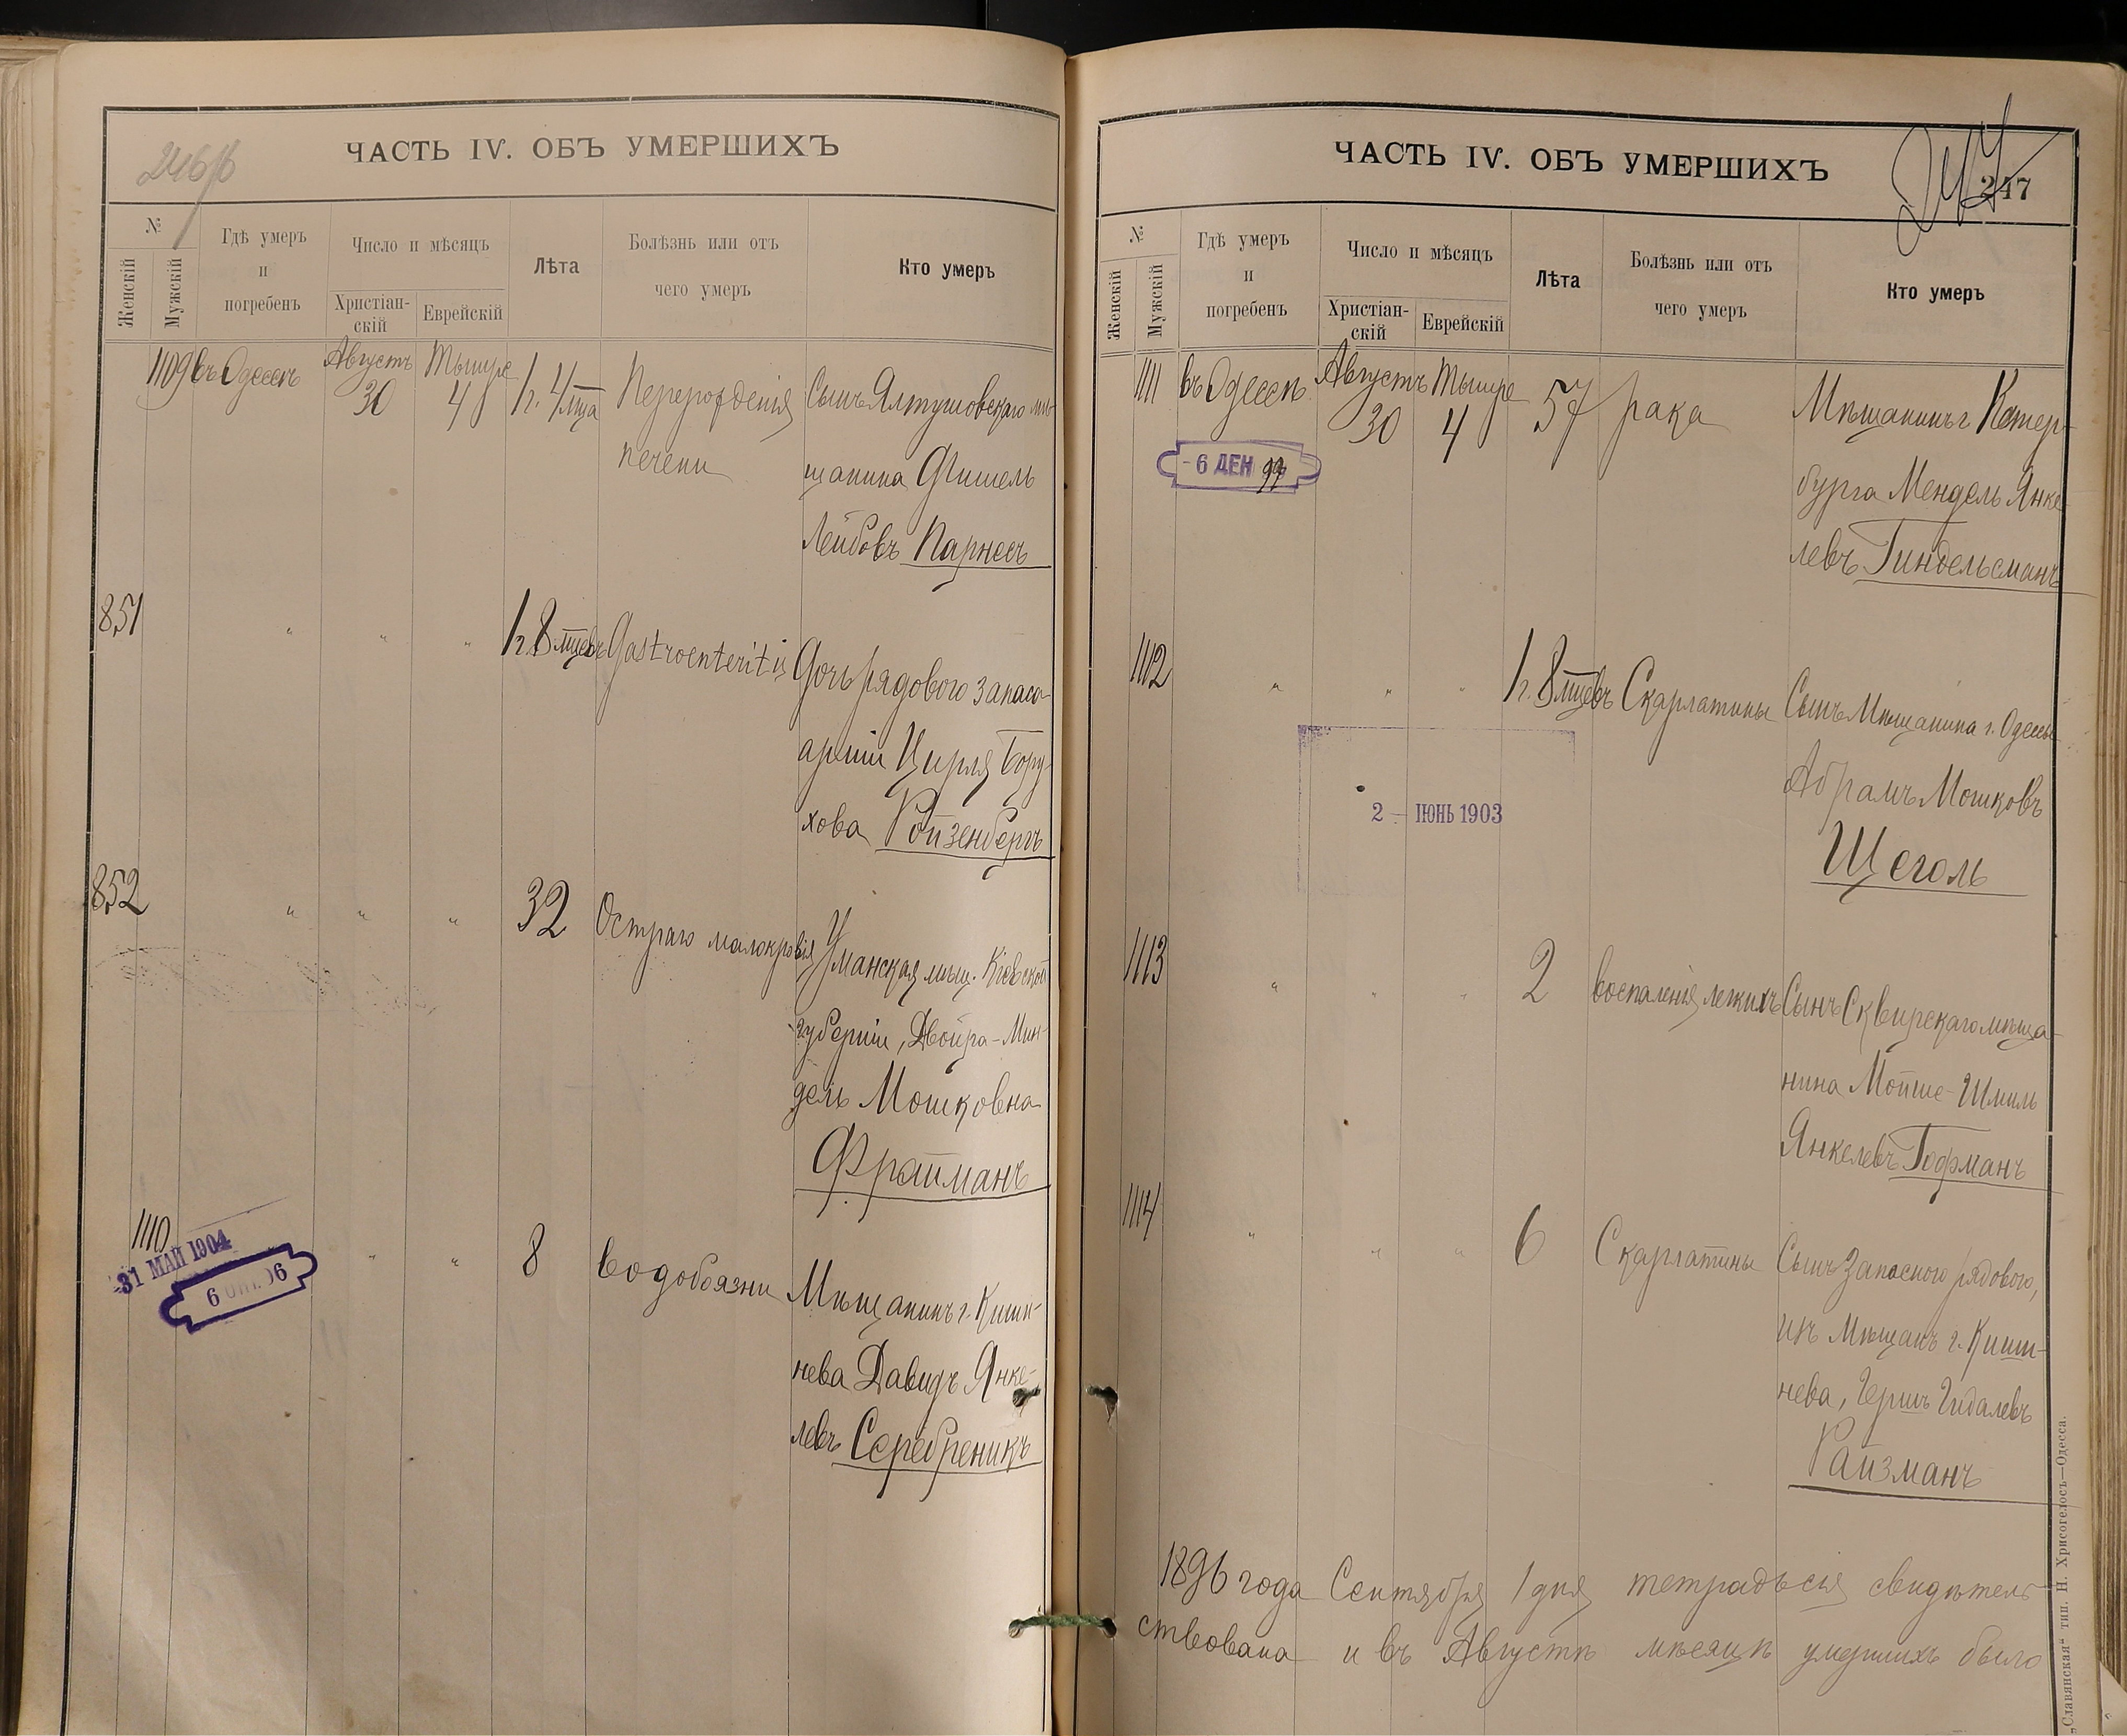 246/б
ЧАСТЬ IV. ОБЪ УМЕРШИХЪ
№
Женскій
Мужскій
Гдѣ умеръ
и
погребенъ
Число и мѣсяцъ
Христіан-
скій
Еврейскій
Лѣта
Болѣзнь или отъ
чего умеръ
Кто умеръ
1109 въ Одессѣ Августъ 30 Тышре 4 1 г. 4 мѣсяца Перерожденія
печени
Сынъ Ялтушовскаго мѣ-
щанина Фишель
Лейбовъ Парнесъ
851 " " " 1 г. 8 мцевъ Gastroenteritis Дочь рядового запаса
арміи Цирля Бору-
хова Ройзенбергъ
852 " " " 32 Остраго малокровія Уманская мѣщ. Кіевской
губерніи, Двойра-Мин-
дель Мошковна
Фрайманъ
1110 " " 8 водобоязни Мѣщанинъ г. Киши-
нева Давидъ Янке-
левъ Серебреникъ
31 МАЙ 1904
ЧАСТЬ IV. ОБЪ УМЕРШИХЪ
247
247
№
Женскій
Мужскій
Гдѣ умеръ
и
погребенъ
Число и мѣсяцъ
Христіан-
скій
Еврейскій
Лѣта
Болѣзнь или отъ
чего умеръ
Кто умеръ
1111 въ Одессѣ Августъ 30 Тышре 4 57 рака Мѣщанинъ г. Катер-
бурга Мендель Янке-
левъ Гиндельсманъ
- 6 ДЕН 99
1112 " " " 1 г. 8 мцевъ Скарлатины Сынъ Мѣщанина г. Одессы
Абрамъ Мошковъ
Щеголь
2 - ІЮНЬ 1903
1113 " " " 2 воспаленія легкихъ Сынъ Сквирскаго мѣща-
нина Мойше-Шмиль
Янкелевъ Гофманъ
1114 " " " 6 Скарлатины Сынъ Запасного рядового,
изъ Мѣщанъ г. Киши-
нева, Гершъ Гидалевъ
Райзманъ
1896 года Сентября 1 дня тетрадь сія свидѣтель
ствована и въ Августѣ мѣсяцѣ умершихъ было
„Славянская“ тип. Н. Хрисогелосъ—Одесса.